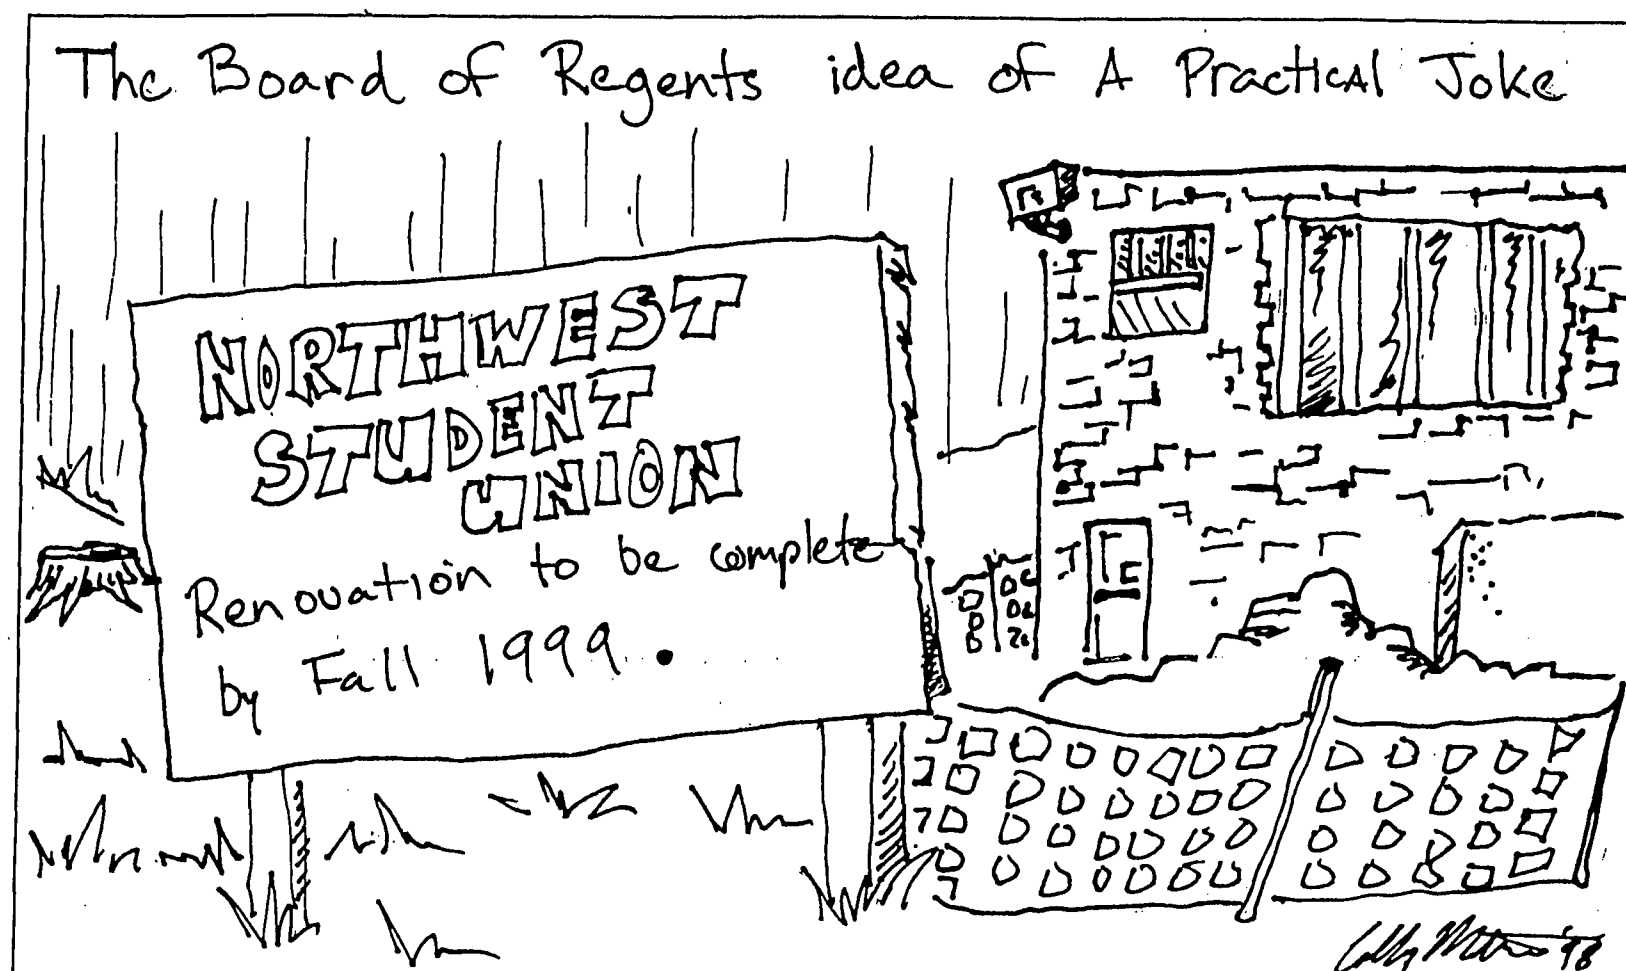 The Board of Regents idea of A Practical Joke
NORTHWEST
STUDENT
UNION
Renovation to be complete
by Fall 1999.
'98